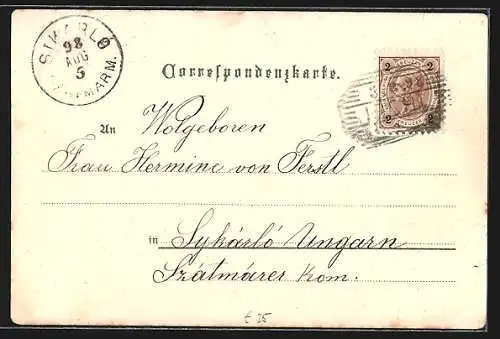 SIKARLÓ
98
AUG
5
SZATMÁRM.
Correspondenzkarte.
2 2
2 2
KREUZER
An Wolgeboren
Frau Hermine von Ferstl
in Sykárló Ungarn
Szátmárer Kom.
£ 25